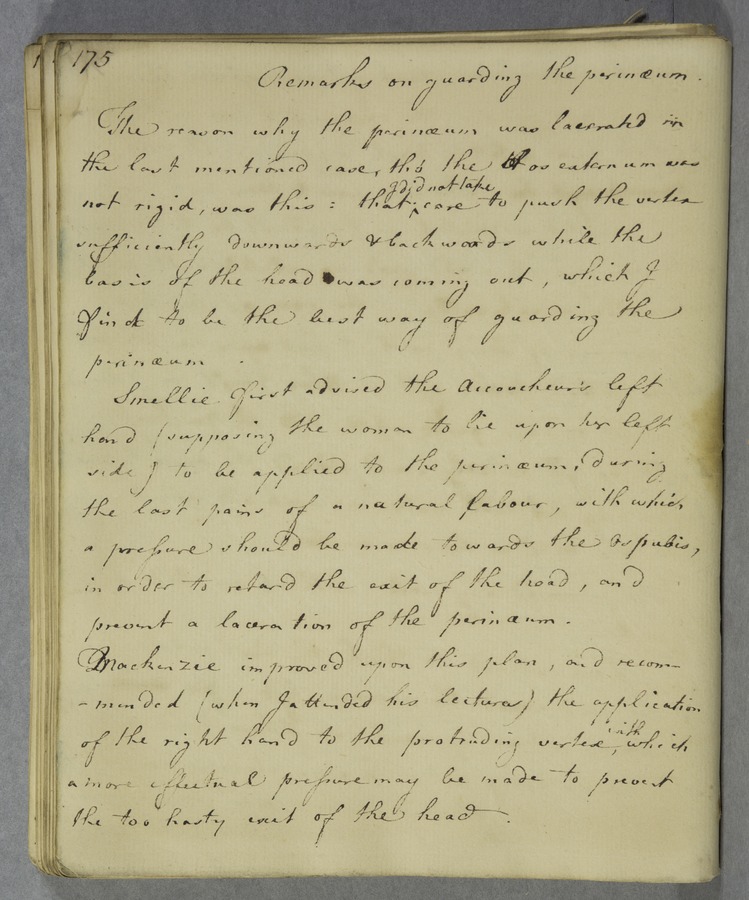 175
Remarks on guarding the perinæum.
The reason why the perinæum was lacerated in
the last mentioned case, tho' the os externum was
I did not take
not rigid, was this: that care to push the vertex
sufficiently downwards & backwards while the
basis of the head was coming out, which I
find to be the best way of guarding the
perinæum.
Smellie first advised the Accoucheur's left
hand (supposing the woman to lie upon her left
side) to be applied to the perinæum, during
the last pains of a natural labour, with which
a pressure should be made towards the os pubis,
in order to retard the exit of the head, and
prevent a laceration of the perinæum.
Mackenzie improved upon this plan, and recom-
-mended (when I attended his lectures) the application
of the right hand to the protruding vertex, with which
a more effectual pressure may be made to prevent
the too hasty exit of the head.